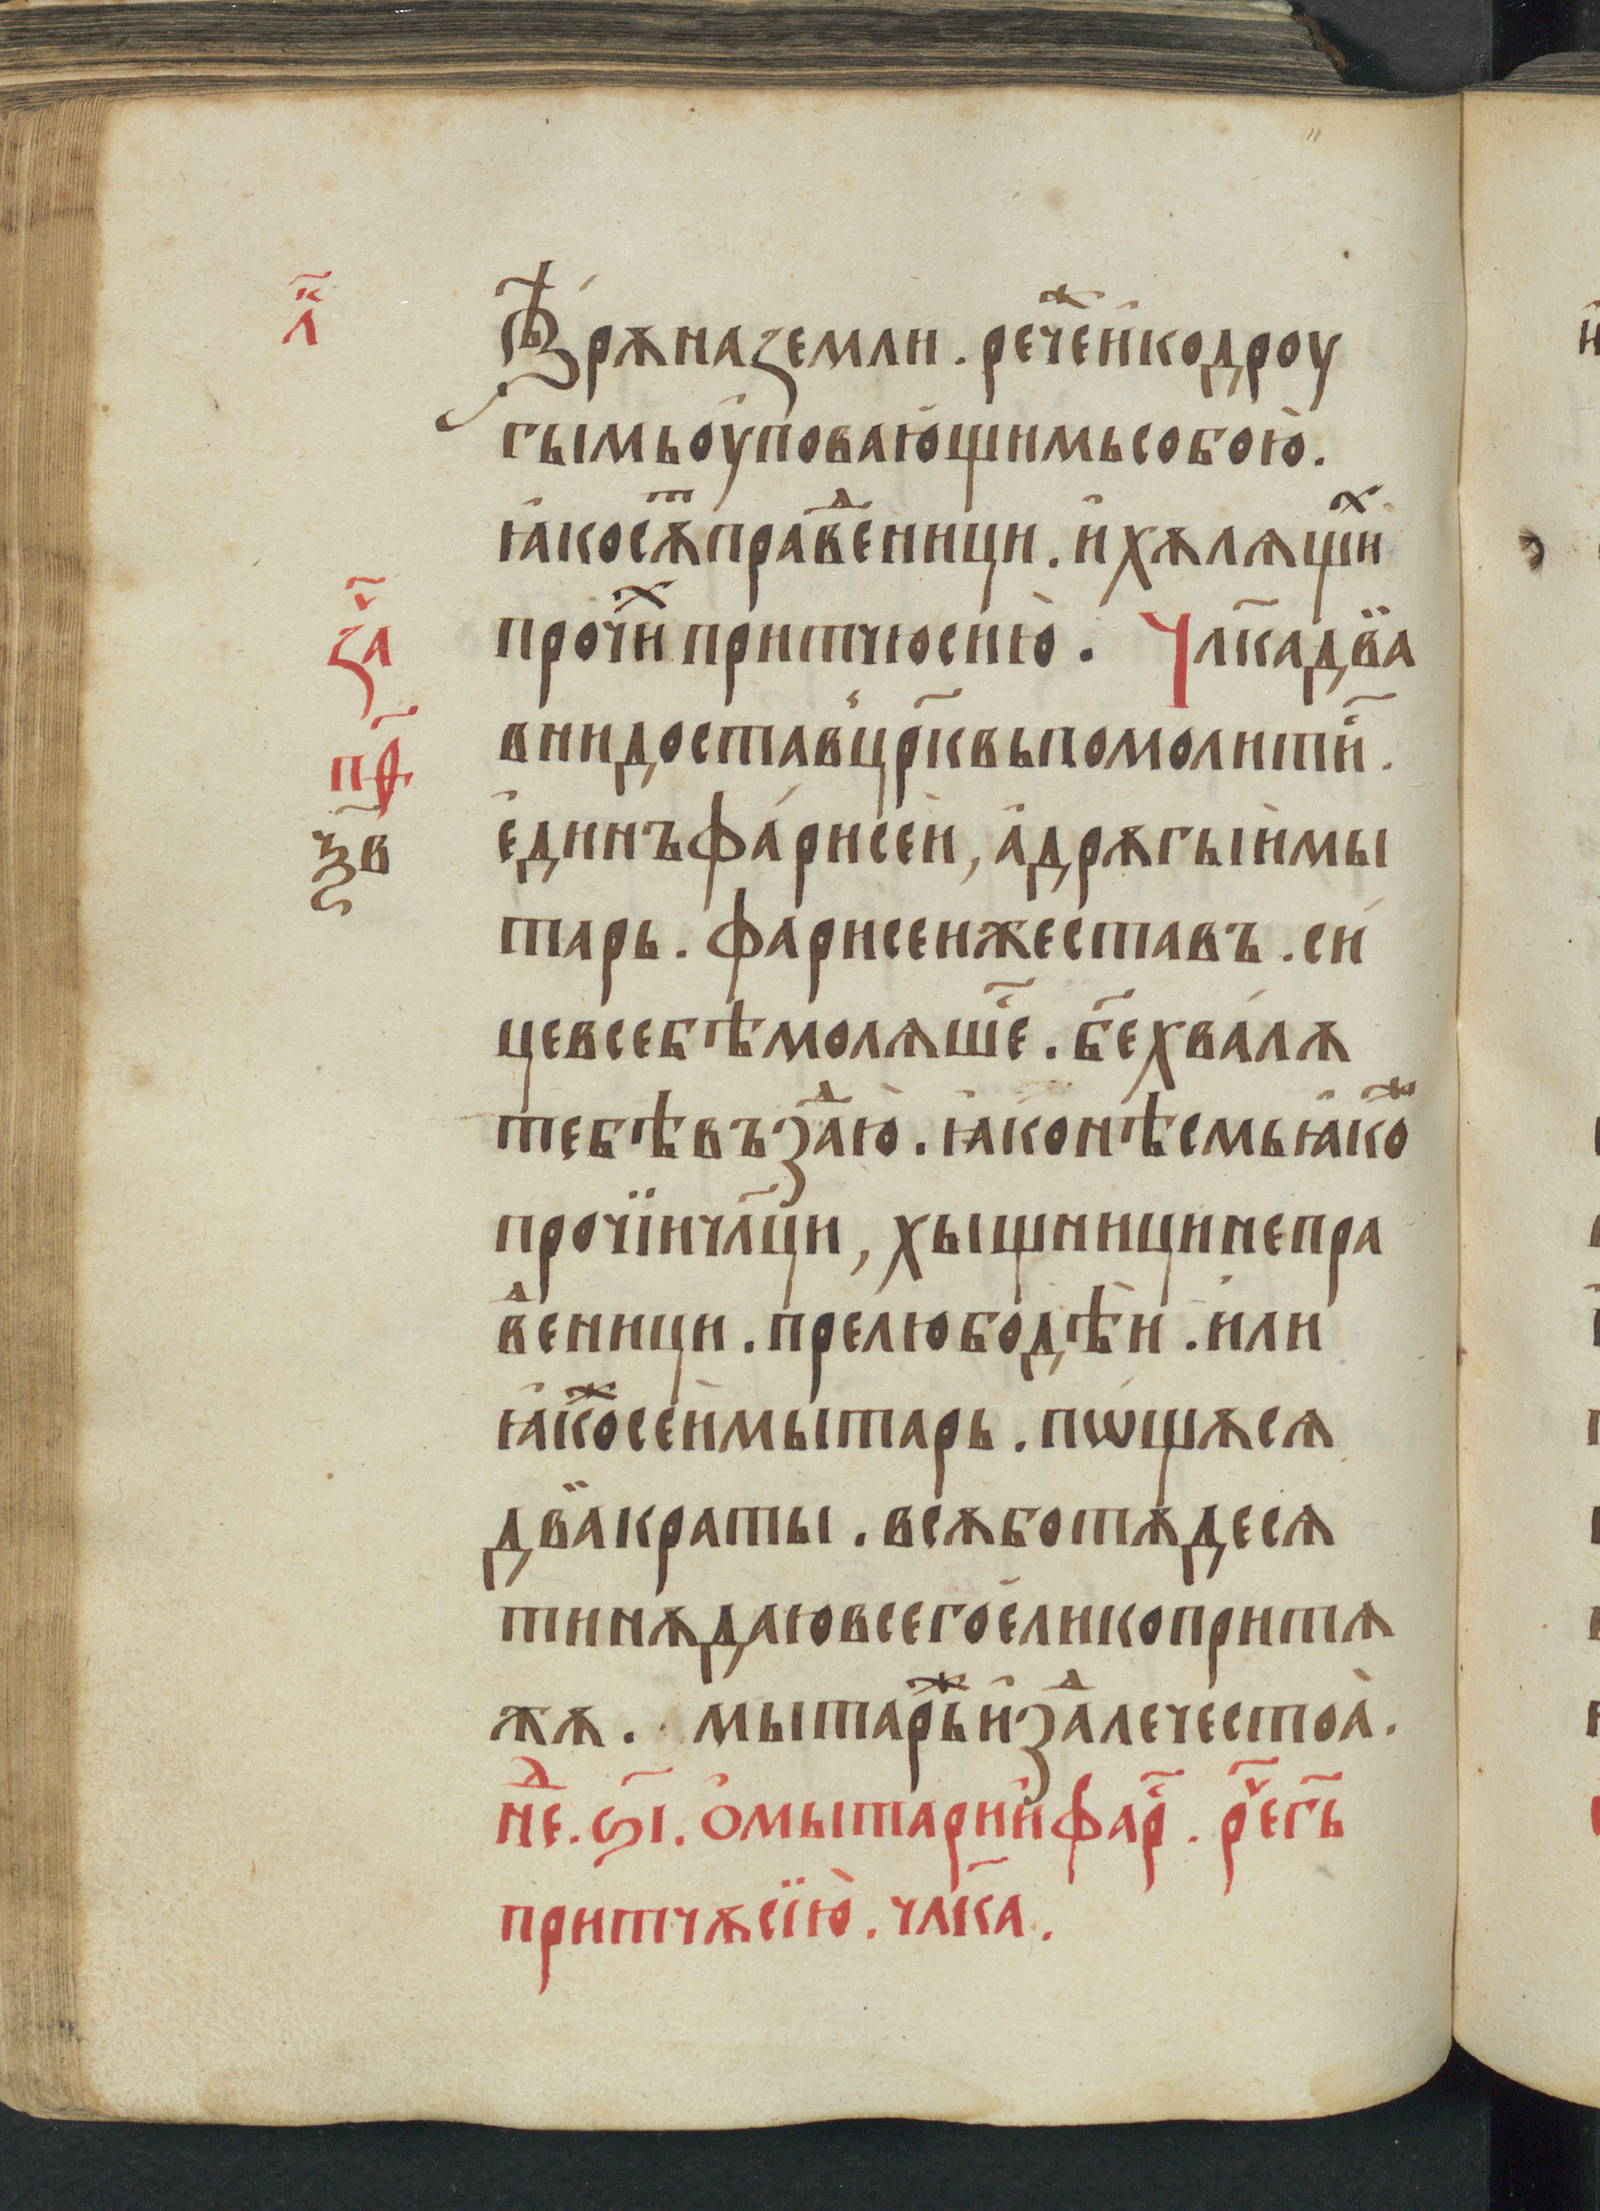 л҃к
Вѣрѫ на земли. рече́ же и҆ к дроу
гымь оу҆повающимь собою̀.
ꙗ҆ко сѫт праведници. и҆ хѫлѧщи́х
прочи́х притчю сию̀. Чл҃ка два̀
внидоста в цр҃квь помолити҆с.
за҃ч
пѳ҃
ѯ҃в
є҆динъ фа́рисеи҆, а҆ дрѫгыи҆ мы
тарь. фарисеи же ставъ. си́
це в себѣ молѧше҆с. бе҃ хва́лѫ
тебѣ въздаю̀. ꙗ҆ко нѣсмь ꙗ҆коже
прочїи чл҃ци, хыщници непра
ведници. прелюбодѣи̇. и҆ли
ꙗ҆коже сеи҆ мытарь. пѡщѫсѧ
два̀краты. в сѫботѫ десѧ
тинѫ даю всего є҆лико притѧ
жѫ. мытарь же и҆здалече стоа̀.
не҃д. ѕ҃і. о҆ мытари и҆ фари́с. реч҃ г҃ь
притчѫ сїю̀. чл҃ка.